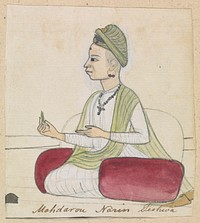 Mahdarou Narrin Peshwa